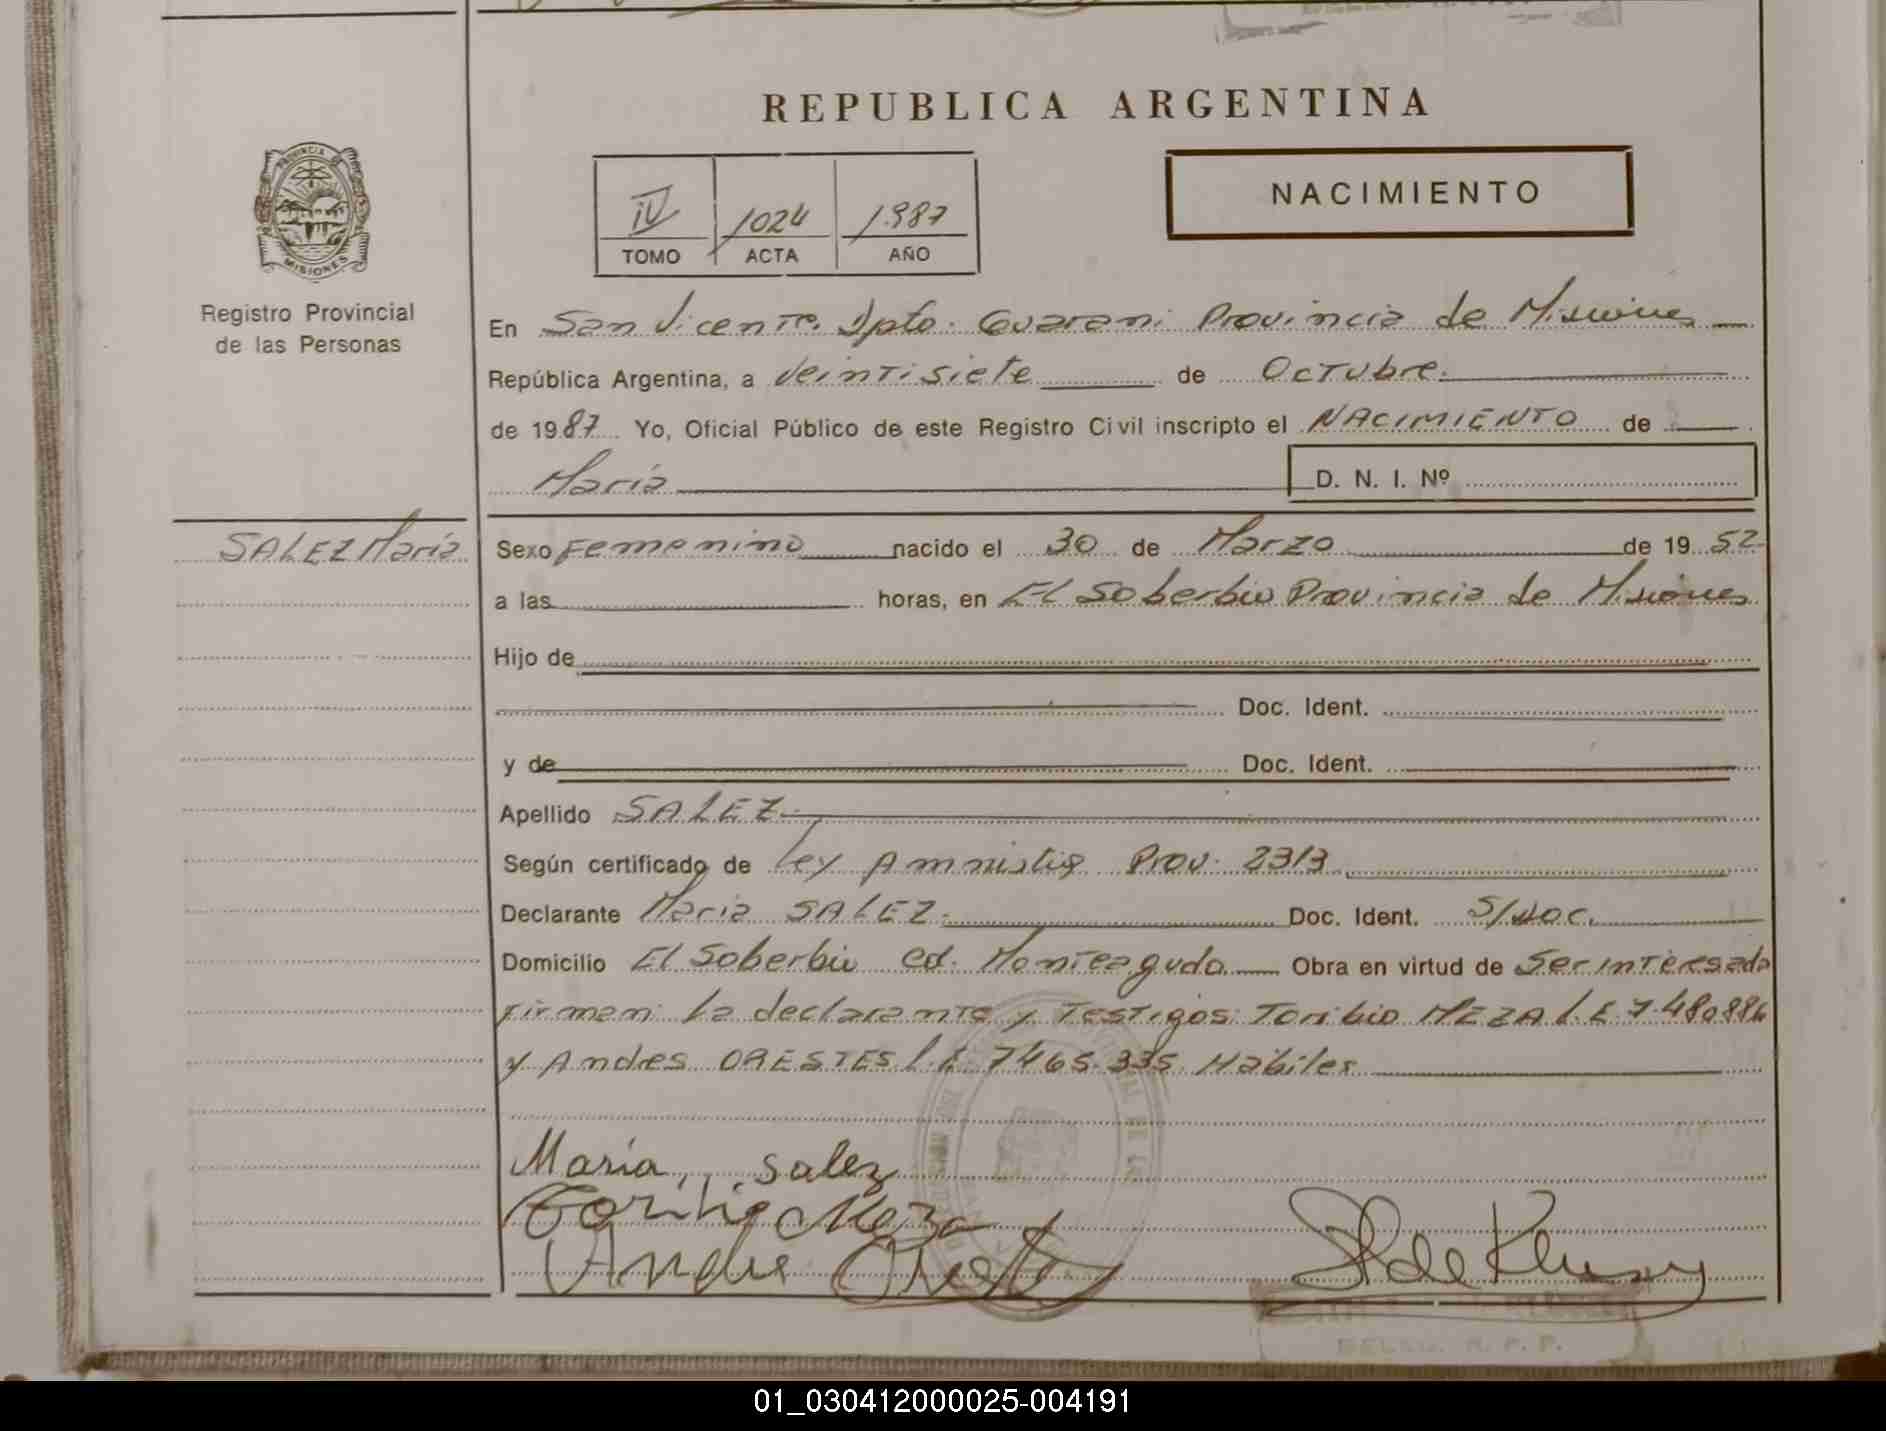 REPUBLICA ARGENTINA
PROVINCIA
MISIONES
Registro Provincial
de las Personas
IV 1024 1987
TOMO ACTA AÑO
NACIMIENTO
En San Vicente. Dpto. Guarani Provincia de Misiones
República Argentina, a veintisiete de Octubre.
de 1987 Yo, Oficial Público de este Registro Civil inscripto el NACIMIENTO de
María D. N. I. Nº
SALEZ María
Sexo Femenino nacido el 30 de Marzo de 1952
a las horas, en El Soberbio Provincia de Misiones
Hijo de
Doc. Ident.
y de Doc. Ident.
Apellido SALEZ
Según certificado de Ley Amnistia Prov. 2313
Declarante Maria SALEZ. Doc. Ident. S/doc.
Domicilio El Soberbio Cd. Monteagudo Obra en virtud de Ser interesada
Firman: La declarante y Testigos: Toribio MEZA L.E 7.480.886
y Andres ORESTES L.E 7465.335. Habiles
María, salez
Toribio Meza
Andre Oreste
01_030412000025-004191